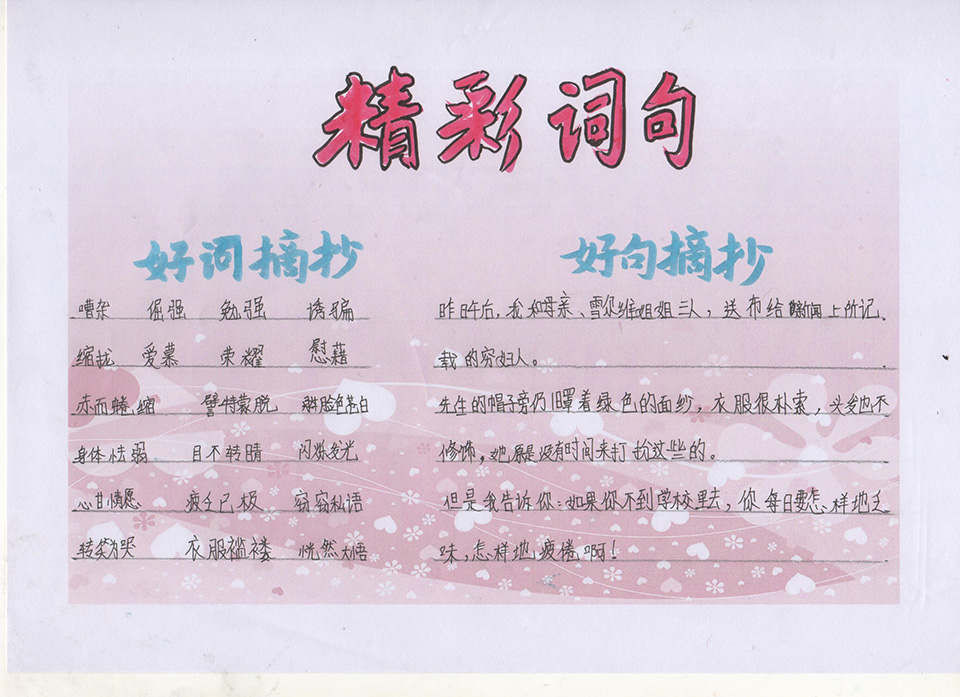 精彩词句
好词摘抄
嘈杂 倔强 勉强 诱骗
缩拢 爱慕 荣耀 慰藉
赤面蜷缩
身体怯弱 目不转睛 闪烁发光
心甘情愿 疲乏已极 窃窃私语
转笑为哭 衣服褴褛 恍然大悟
好句摘抄
昨日午后，我和母亲、雪尔维姐姐三人，送布给新闻上所记
载的穷妇人。
先生的帽子旁仍旧罩着绿色的面纱，衣服很朴素，头发也不
修饰，她原是没有时间来打扮这些的。
但是我告诉你：如果你不到学校里去，你每日要怎样地乏
味，怎样地疲倦啊！